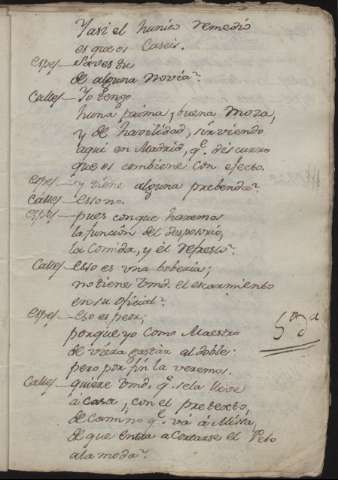 Y asi el hunico remedio
es que os Caseis.
Espej — Saves tu
de alguna novia?
Calles — Yo tengo
huna prima, buena moza,
y de havilidad, sirviendo
aqui en Madrid, q.e discurro
que os combiene con efecto.
Espej — y tiene alguna prebenda?
Calles — Esso no.
Espej — pues con que haremos
la función del desposorio,
la Comida, y el refresco?
Calles — Esso es una boberia;
no tiene Vmd. el escarmiento
en su oficial?
Espej — Eso es peor;
porque yo como Maestro
de viera gastar al doble:
pero por fin la veremos.
Calles — quiere Vmd. q.e se la lleve
a casa, con el pretexto,
de camino q.e va á Missa,
de que entra a Cortarse el Pelo
a la moda?